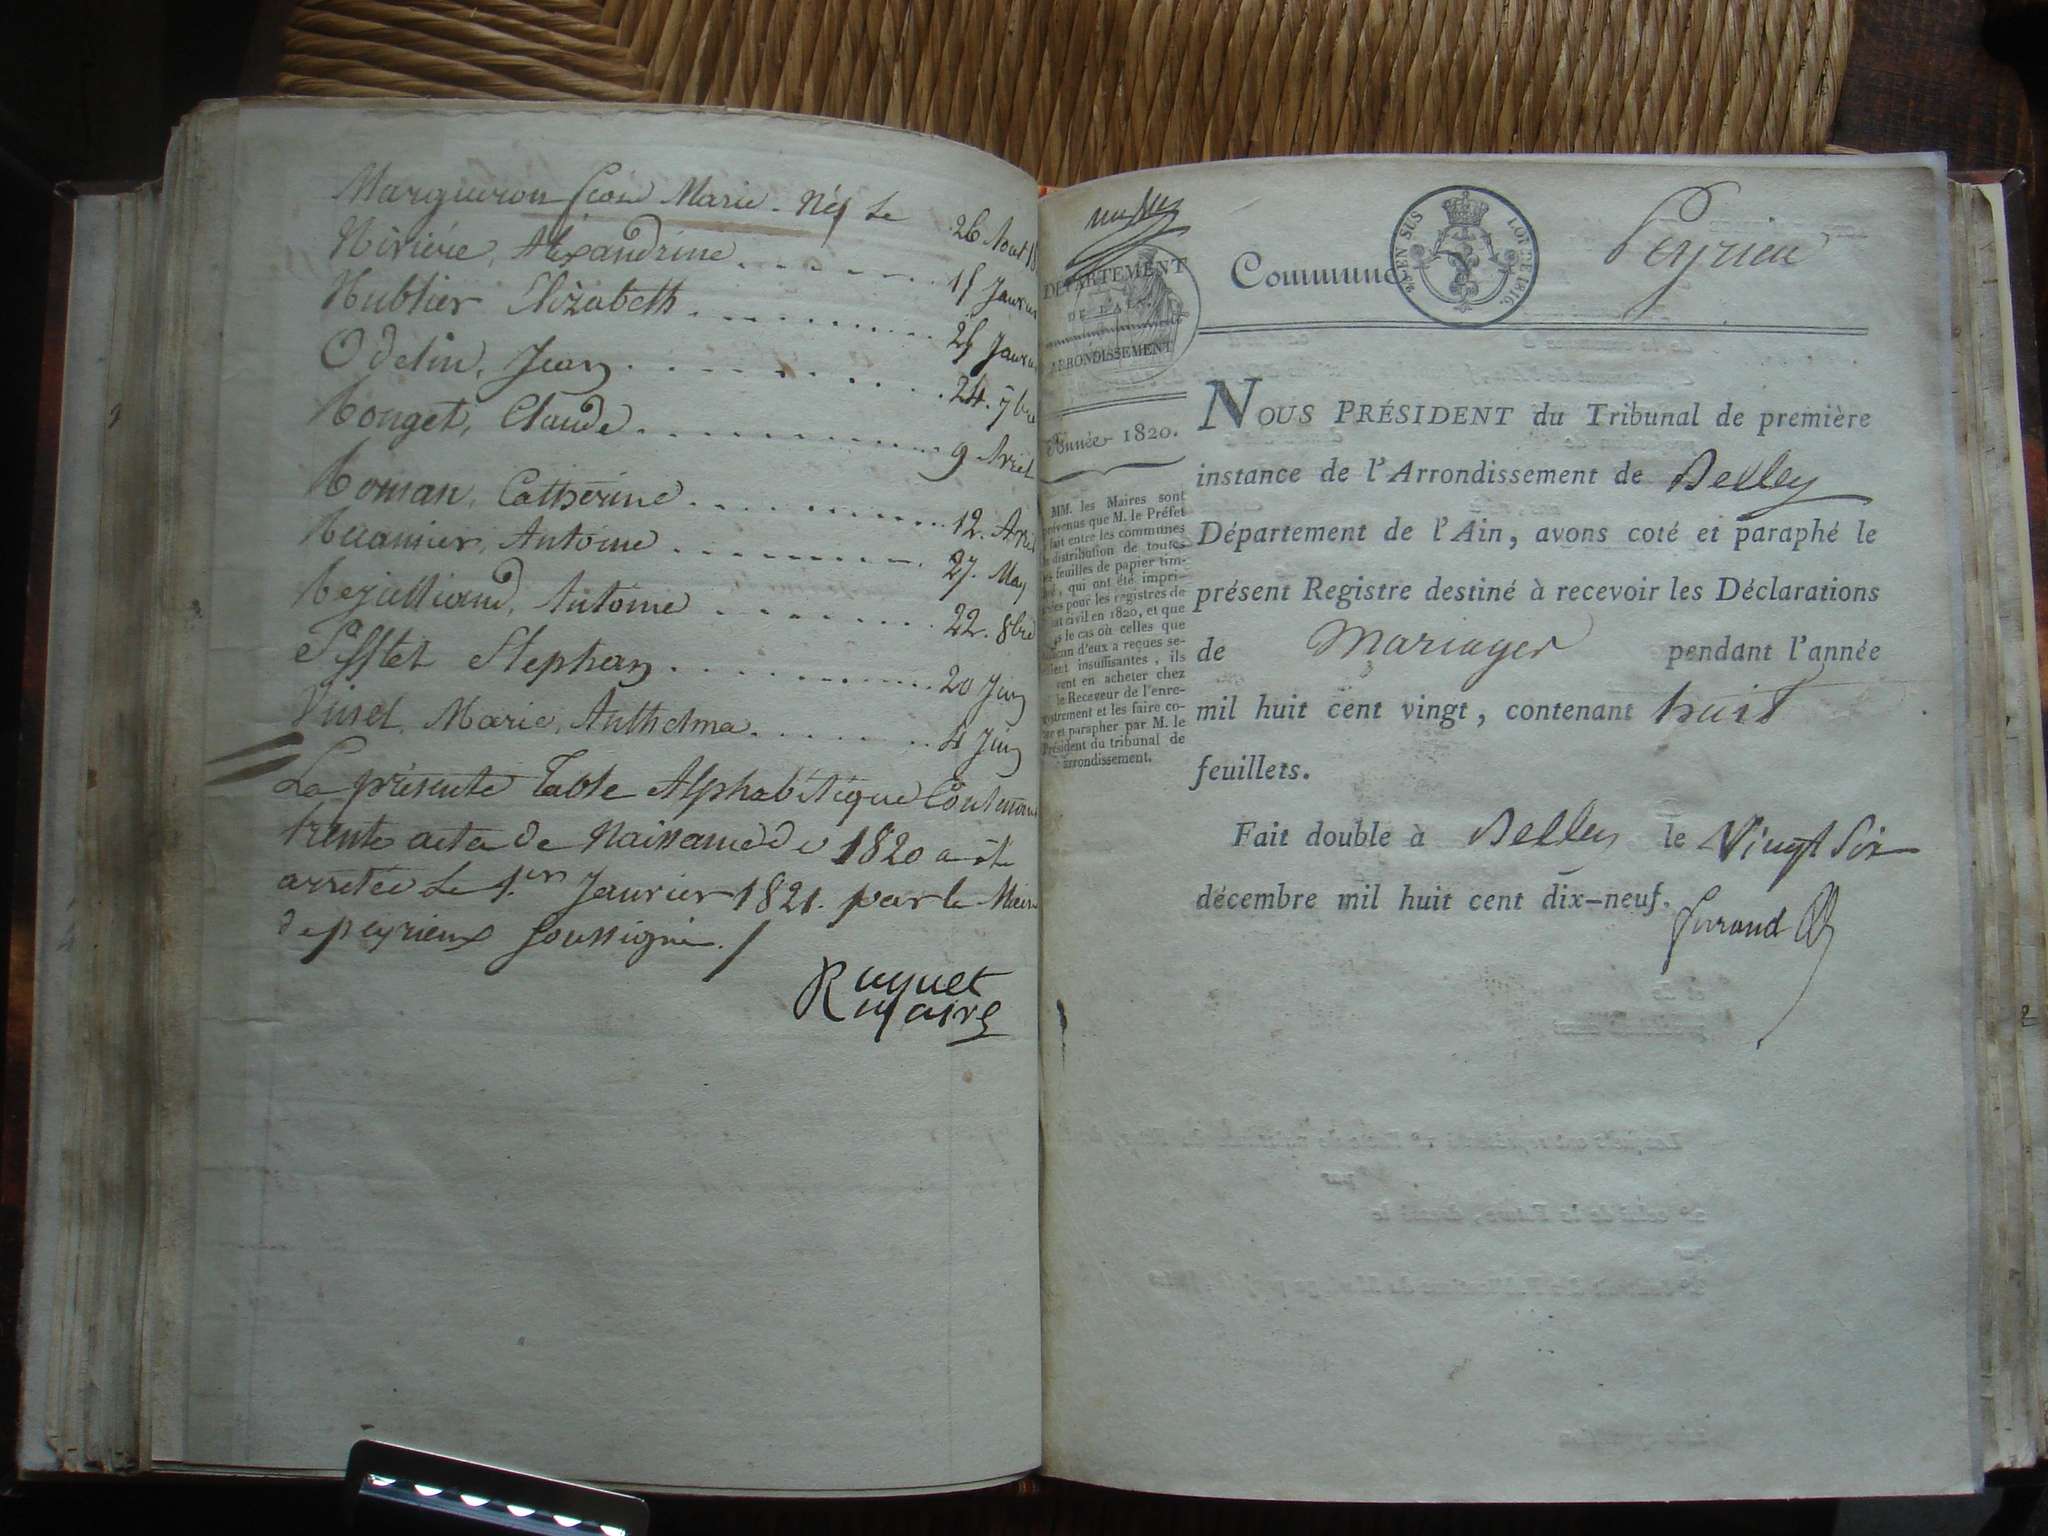 Margueron Marie. Née Le 26 Aout 18
Nivière, Alexandrine 15 Janvier
Nublier Elizabeth 25 Janvier
Odelin, Jean 24. 7bre
Rouget, Claude 9 Avril
Roman, Catherine 12. Avril
Antoine 27. May
Antoine 22. 8bre
Sifflet Stephan 20 Juin
Vinet, Marie, Anthelma 4 Juin
La présente Table Alphabétique Contenant
trente actes de Naissance de 1820 a été
arretée Le 1.er Janvier 1821. par le Maire
de peyrieux soussigné./
Ruquet
maire
Commune
Peyrieu
EN SUS
LOI DE 1816.
DÉPARTEMENT
DE L'AIN.
ARRONDISSEMENT
Année 1820.
MM. les Maires sont
prévenus que M. le Préfet
fait entre les communes
distribution de toutes
feuilles de papier tim-
qui ont été impri-
pour les registres de
civil en 1820, et que
le cas où celles que
d'eux a reçues se-
insuffisantes, ils
en acheter chez
le Receveur de l'enre-
et les faire co-
et parapher par M. le
Président du tribunal de
arrondissement.
NOUS PRÉSIDENT du Tribunal de première
instance de l'Arrondissement de Belley
Département de l'Ain, avons coté et paraphé le
présent Registre destiné à recevoir les Déclarations
de Mariages pendant l'année
mil huit cent vingt, contenant huit
feuillets.
Fait double à Belley le Vingt Six
décembre mil huit cent dix-neuf.